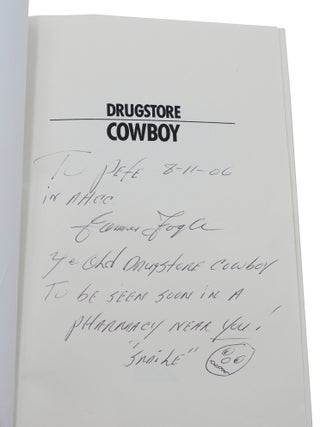 DRUGSTORE
COWBOY
To Pete 8-11-06
in AHCC
James Fogle
Ye Old Drugstore Cowboy
To be seen soon in a
pharmacy near you!
"Smile"